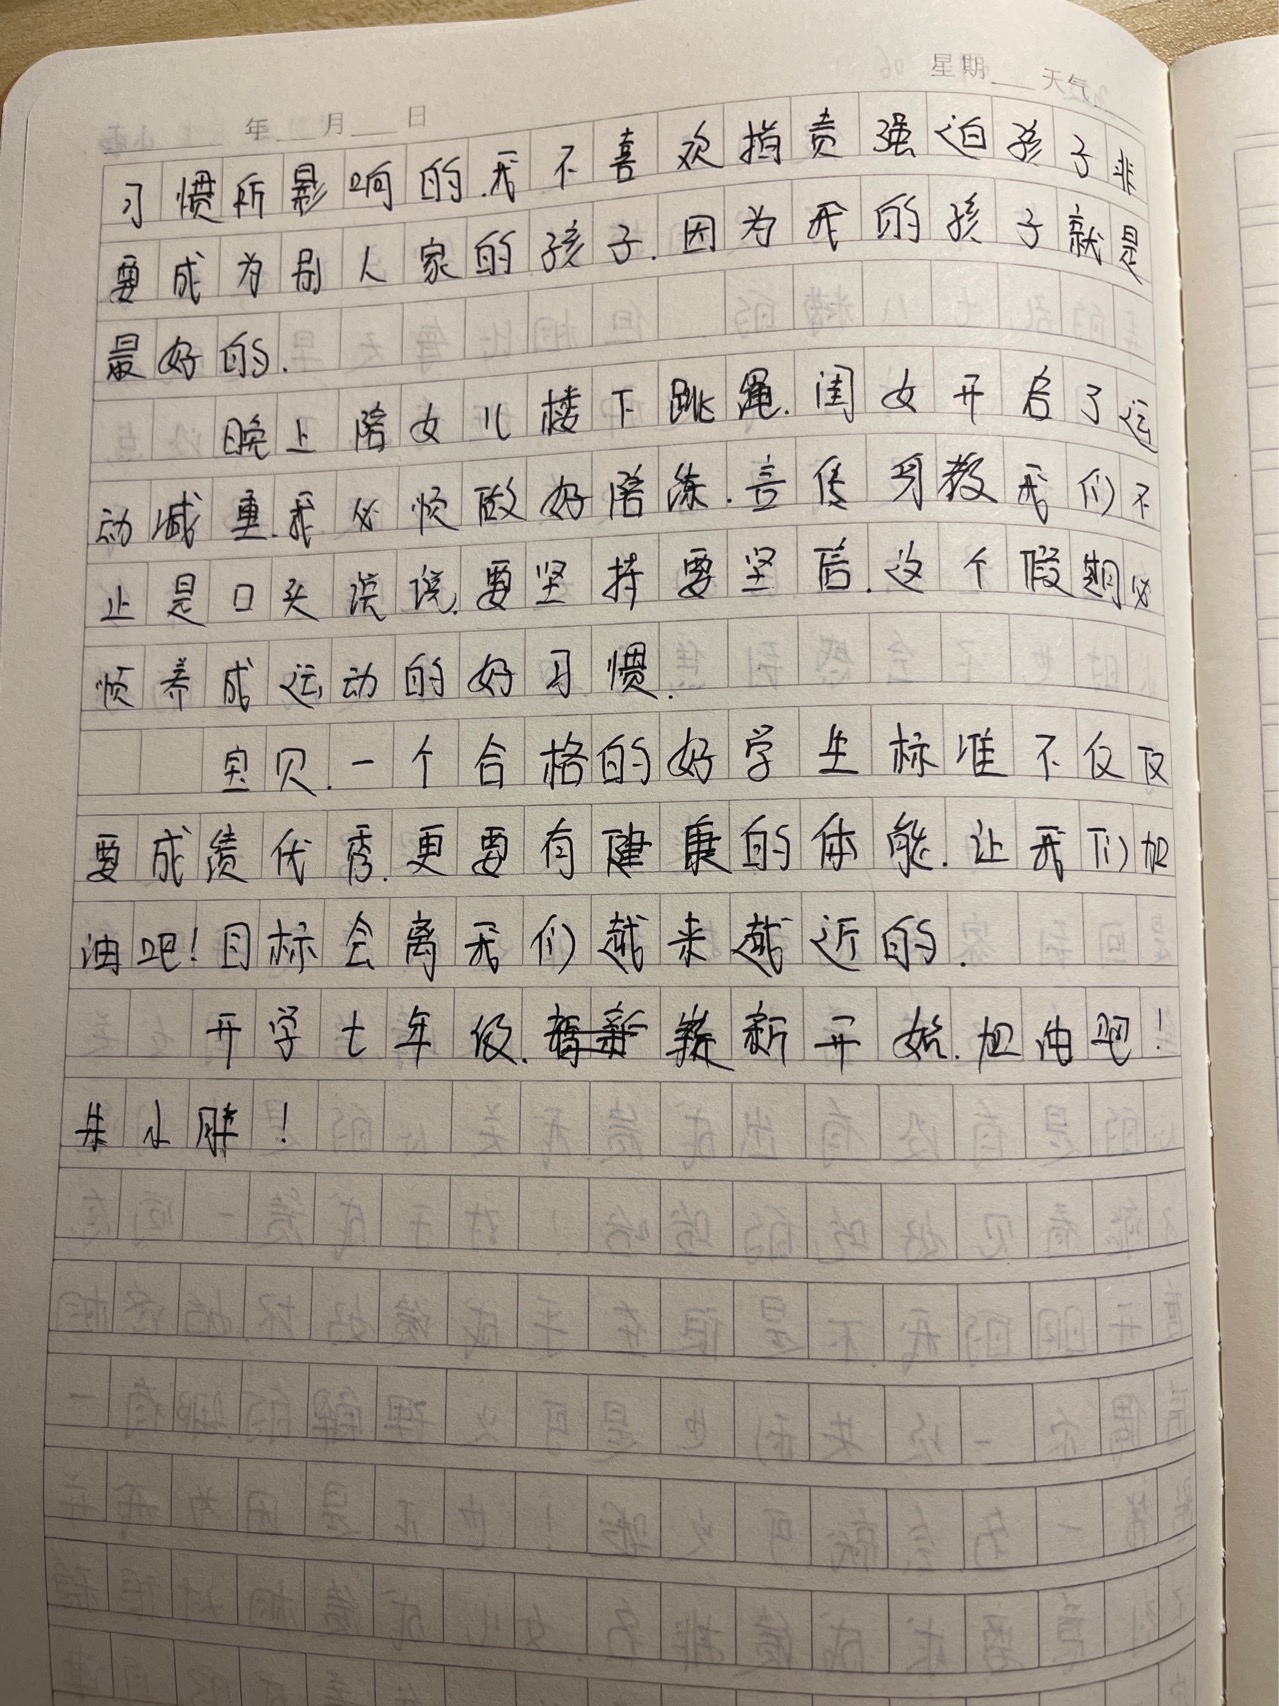 年 月 日 星期 天气
习惯所影响的.我不喜欢指责强迫孩子非
要成为别人家的孩子.因为我的孩子就是
最好的.
晚上陪女儿楼下跳绳.闺女开启了运
动减重.我必须做好陪练.言传身教我们不
止是口头说说.要坚持要坚信.这个假期必
须养成运动的好习惯.
宝贝.一个合格的好学生标准不仅仅
要成绩优秀.更要有健康的体能.让我们加
油吧!目标会离我们越来越近的.
开学七年级.崭新开始.加油吧!
朱小胖!